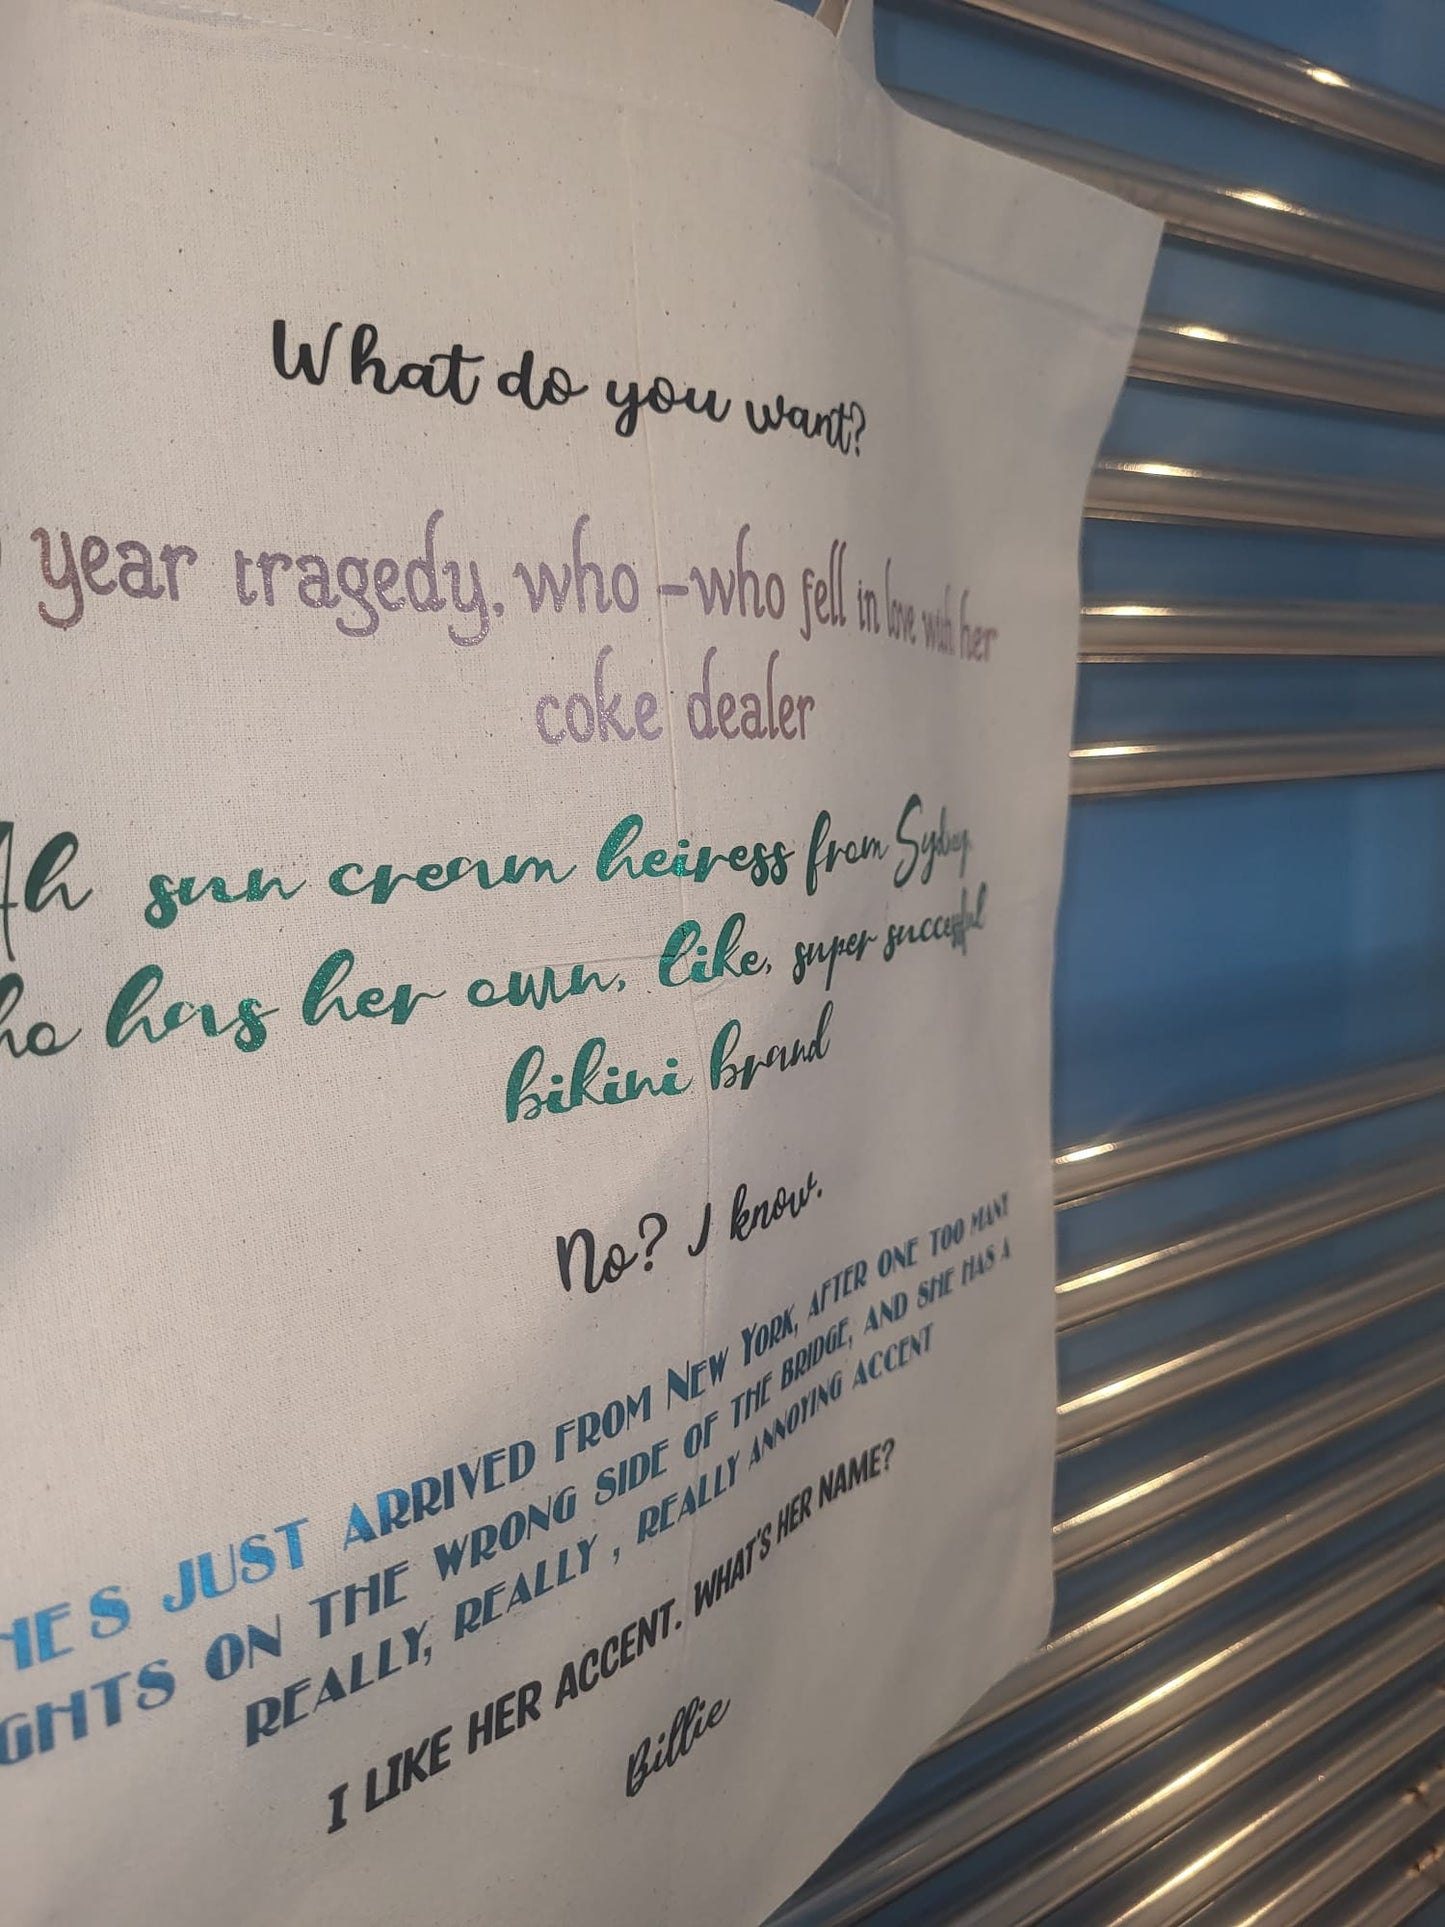 What do you want?
year tragedy, who -who fell in love with her
coke dealer
Ah sun cream heiress from Sydney
has her own, like, super successful
bikini brand
No? I know.
HE S JUST ARRIVED FROM NEW YORK, AFTER ONE TOO MANY
GHTS ON THE WRONG SIDE OF THE BRIDGE, AND SHE HAS A
REALLY, REALLY , REALLY ANNOYING ACCENT
I LIKE HER ACCENT. WHAT'S HER NAME?
Billie